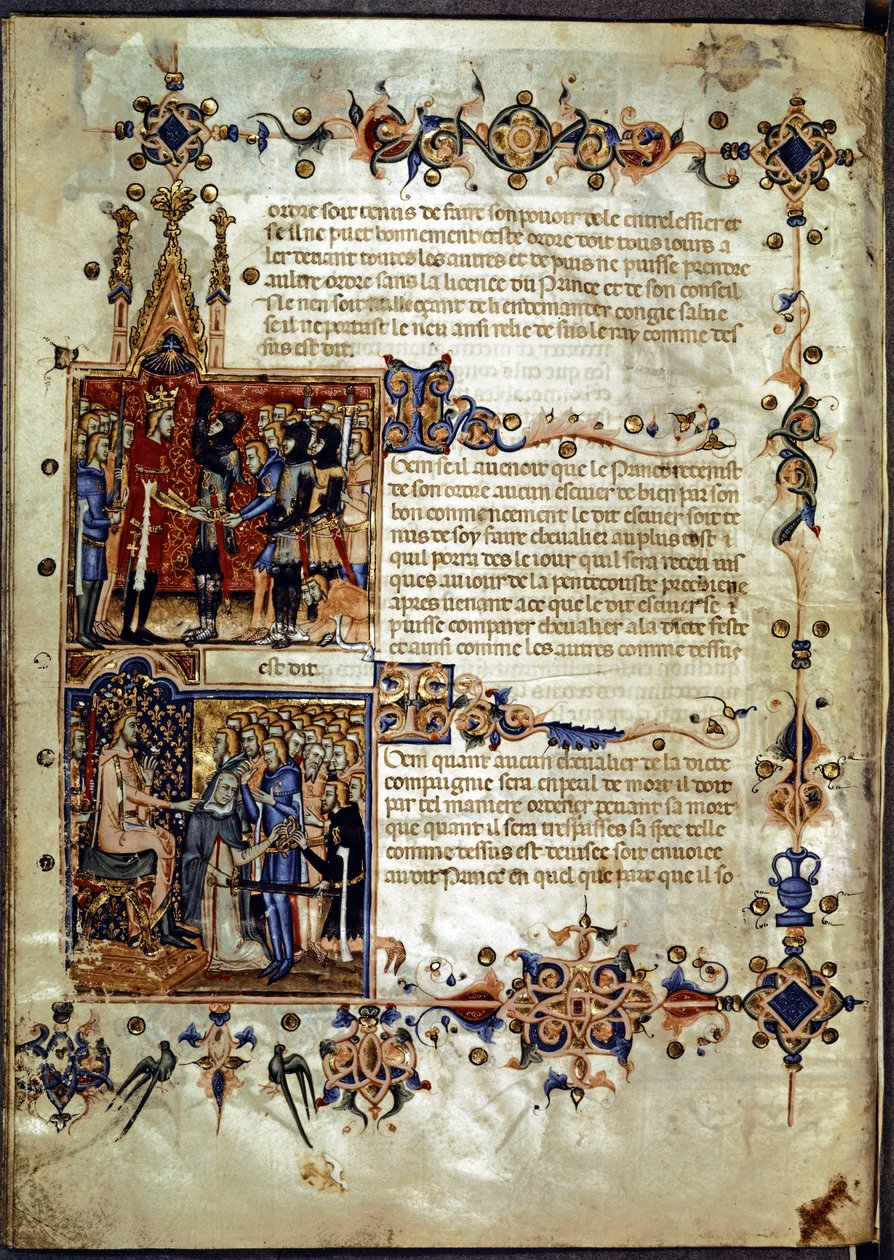 ordre soit tenus de faire son pouoir de le entrelessier et
se il ne puet bonnement ceste ordre doit tous iours a
ler deuant toutes les autres et de puis ne puisse prendre
aultre ordre sans la licence du Prince et de son conseil
Ne nen soit de li en demander congie salue
se il ne portast le neu ansi relie de sus le ray comme des
sus est dit.
Item se il auenoit que le Prince retenist
de son ordre aucun escuier de bien par son
bon commencement le dit escuier soit te
nus de soy faire cheualier au plus tost
quil porra des le iour quil sera recen us
ques au iour de la pentecouste precheine
apres uenant a ce que le dit escuier se
puisse comparer cheualier a la dicte feste
et ainsi comme les autres comme dessus
est dit
Item quant aucun cheualier de la dicte
compaignie sera en peril de mort il doit
par tel maniere ordener deuant sa mort
que quant il sera trespasses sa spee telle
comme dessus est deuisee soit enuoiee
au dit Prince en quel que part que il so